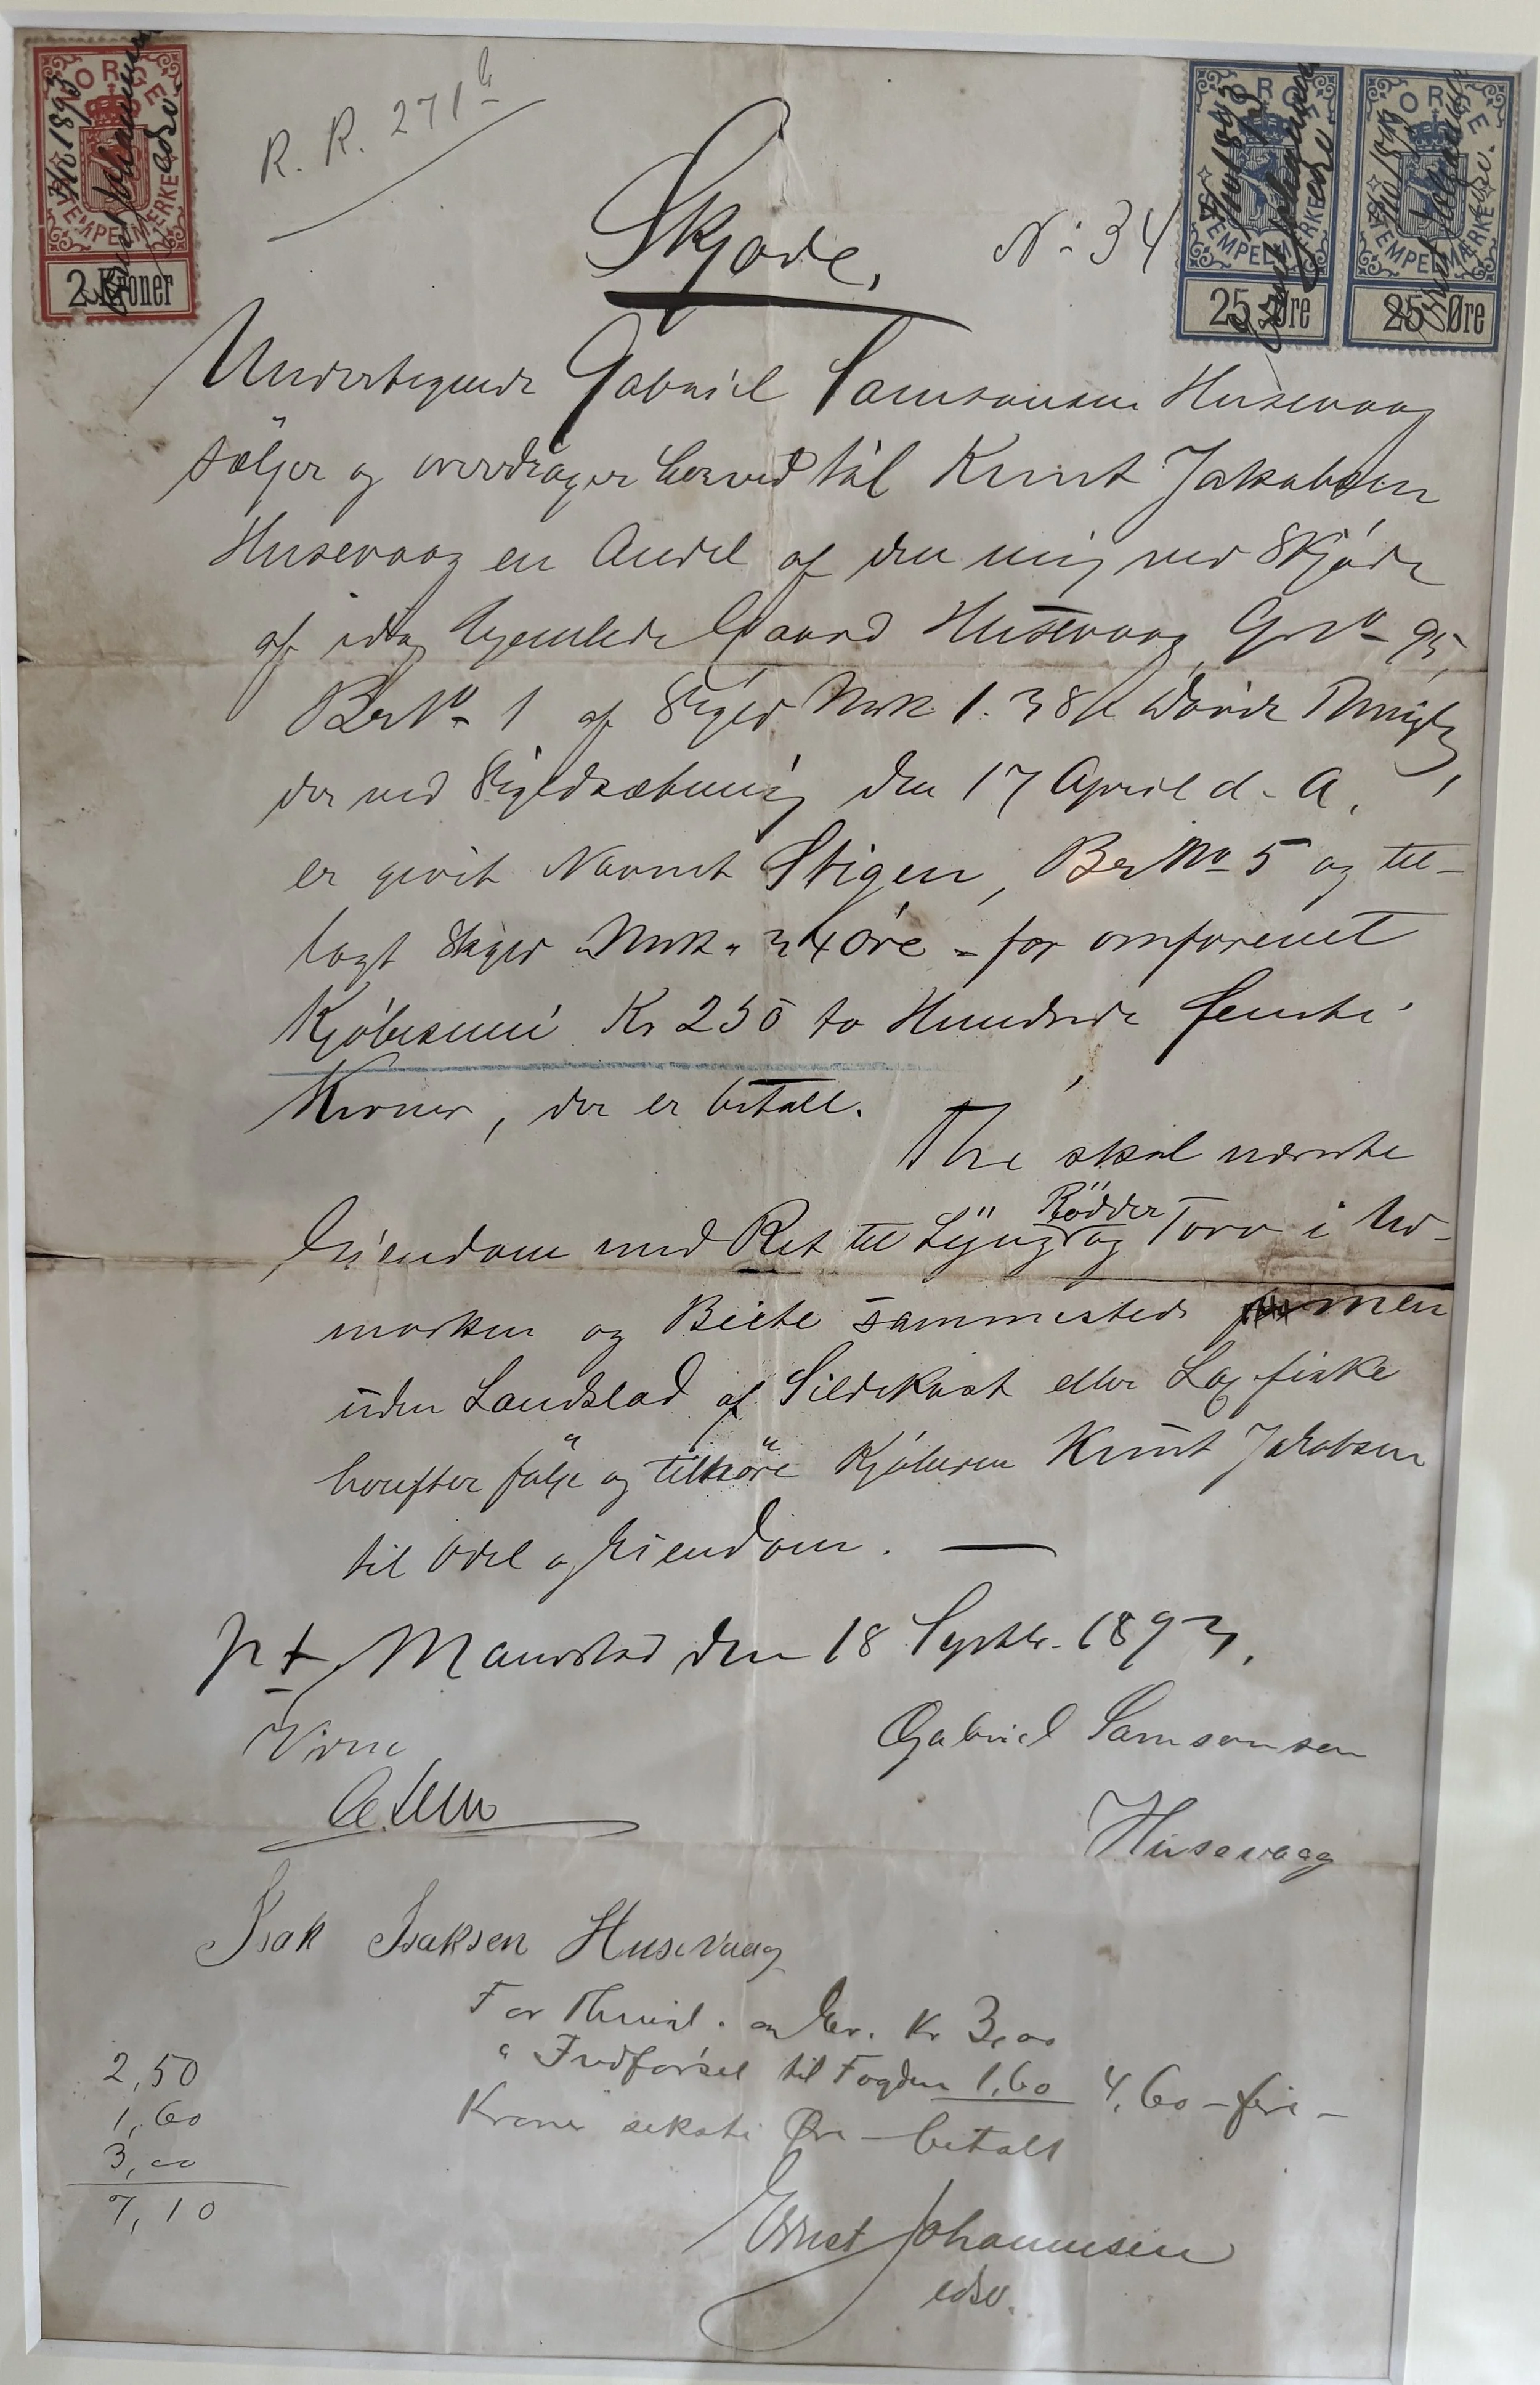 R. R. 271 b
NORGE
STEMPELMÆRKE
2 Kroner
NORGE
STEMPELMÆRKE
25 Øre
NORGE
STEMPELMÆRKE
25 Øre
Skjøde,
No 34
Undertegnede Gabriel Samsonsen Husevaag
sælger og overdrager herved til Knut Jakobsen
Husevaag en Andel af den mig ved Skjøde
af idag hjemlede Gaard Husevaag, Gr No 95,
Br No 1 af Skyld Mrk 1.38 Davik Thinglag,
der ved Skyldsætning den 17 April d. A.
er givet Navnet Stigen, Br No 5 og til-
lagt Skyld Mrk 34 Øre for omforenet
Kjøbesum Kr 250 to Hundrede femti
Kroner, der er betalt.
Thi skal nævnte
Eiendom med Ret til Lyng Rødder og Torv i Ud-
marken og Beite sammesteds men
uden Landslod af Sildekast eller Laxfiske
herefter følge og tilhøre Kjøberen Knut Jakobsen
til Odel og Eiendom. —
pt Maurstad den 18 Septbr. 1893.
Gabriel Samsonsen
Husevaag
Isak Isaksen Husevaag
For Thinl. Kr 3,00
" Indførsel til Fogden 1,60 4,60 – fire –
Kroner seksti Øre – betalt
Ernst Johannesen
edsv.
2,50
1,60
3,00
7,10